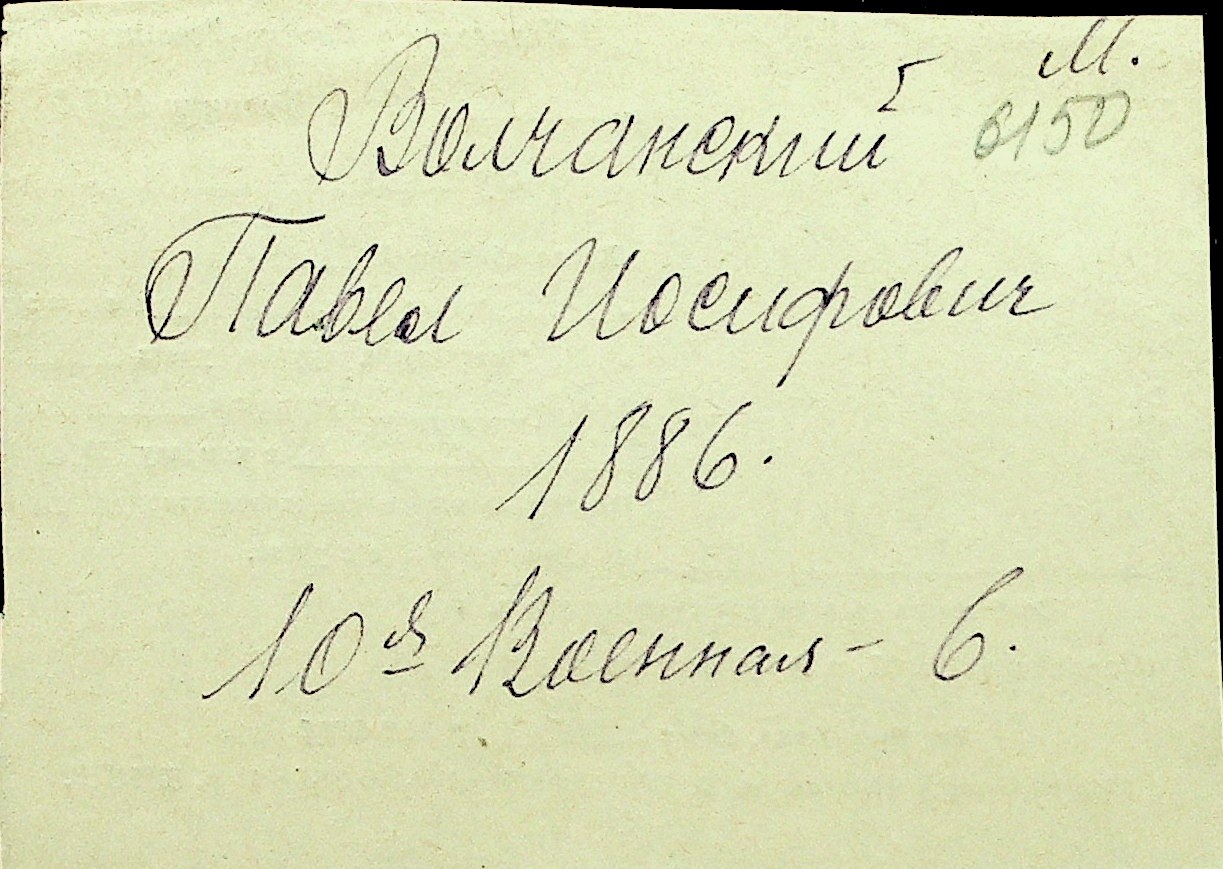 М.
Волчанский 6150
Павел Иосифович
1886.
10я Военная - 6.